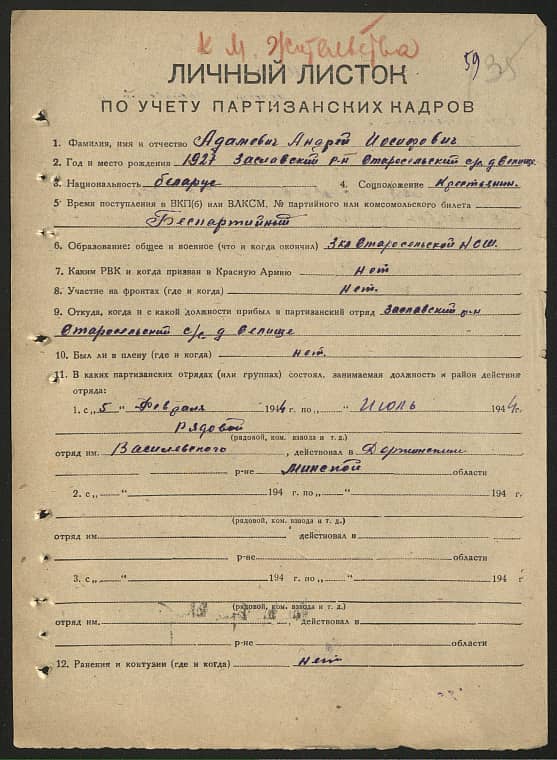 К м. жительства
59 35
ЛИЧНЫЙ ЛИСТОК
ПО УЧЕТУ ПАРТИЗАНСКИХ КАДРОВ
1. Фамилия, имя и отчество Адамович Андрей Иосифович
2. Год и место рождения 1927 Заславский р-н Старосельский с/с д Селище
3. Национальность беларус 4. Соцположение Крестьянин.
5 Время поступления в ВКП(б) или ВЛКСМ, № партийного или комсомольского билета
Беспартийный
6. Образование: общее и военное (что и когда окончил) 3 кл Старосельской НСШ.
7. Каким РВК и когда призван в Красную Армию нет
8. Участие на фронтах (где и когда) нет.
9. Откуда, когда и с какой должности прибыл в партизанский отряд Заславский р-н
Старосельский с/с д Селище
10. Был ли в плену (где и когда) нет.
11. В каких партизанских отрядах (или группах) состоял, занимаемая должность и район действия
отряда:
1. с „5 “ Февраля 1944 г. по „ “ Июль 1944 г.
Рядовой
(рядовой, ком. взвода и т. д.)
отряд им. Василевского , действовал в
р-не Минской области
2. с „ “ 194 г. по „ “ 194 г.
(рядовой, ком. взвода и т. д.)
отряд им. , действовал в
р-не области
3. с „ “ 194 г. по „ “ 194 г
(рядовой, ком. взвода и т. д.)
отряд им. , действовал в
р-не области
12. Ранения и контузии (где и когда) нет